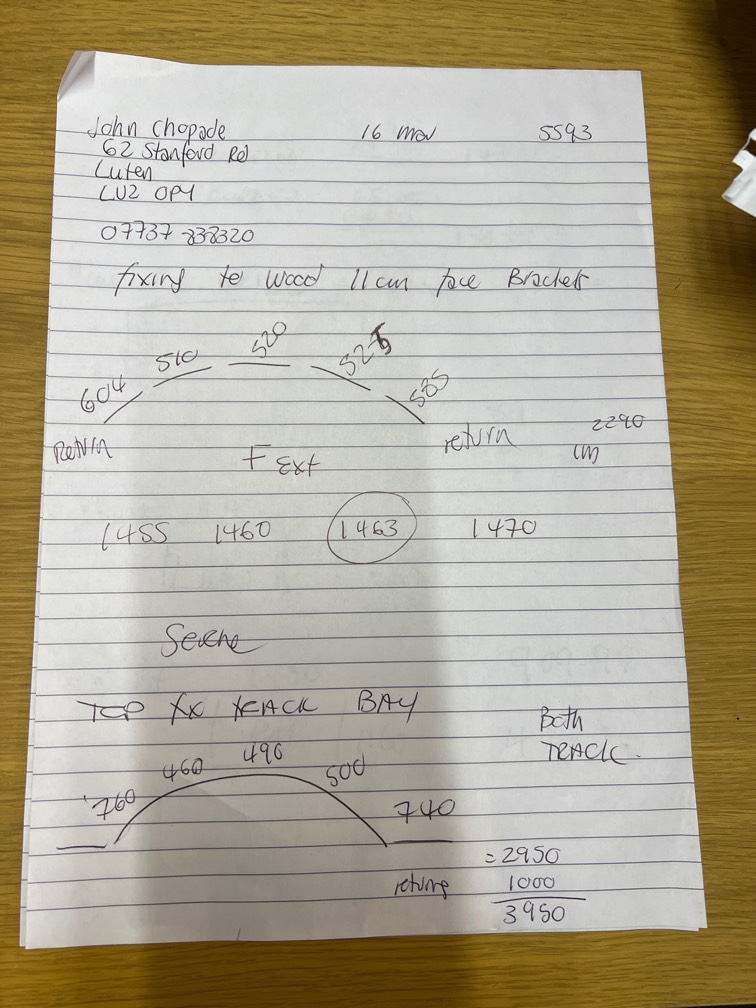 John Chopade 16 Mar 5593
62 Stanford Rd
Luten
LU2 OPY
07737 838320
fixing to wood 11cm face Brackets
604 510 520 525 585
Return return 2290
cm
F Ext
1455 1460 1463 1470
TOP FX TRACK BAY
Both
TRACK.
760 460 490 500 740
= 2950
returns 1000
3950